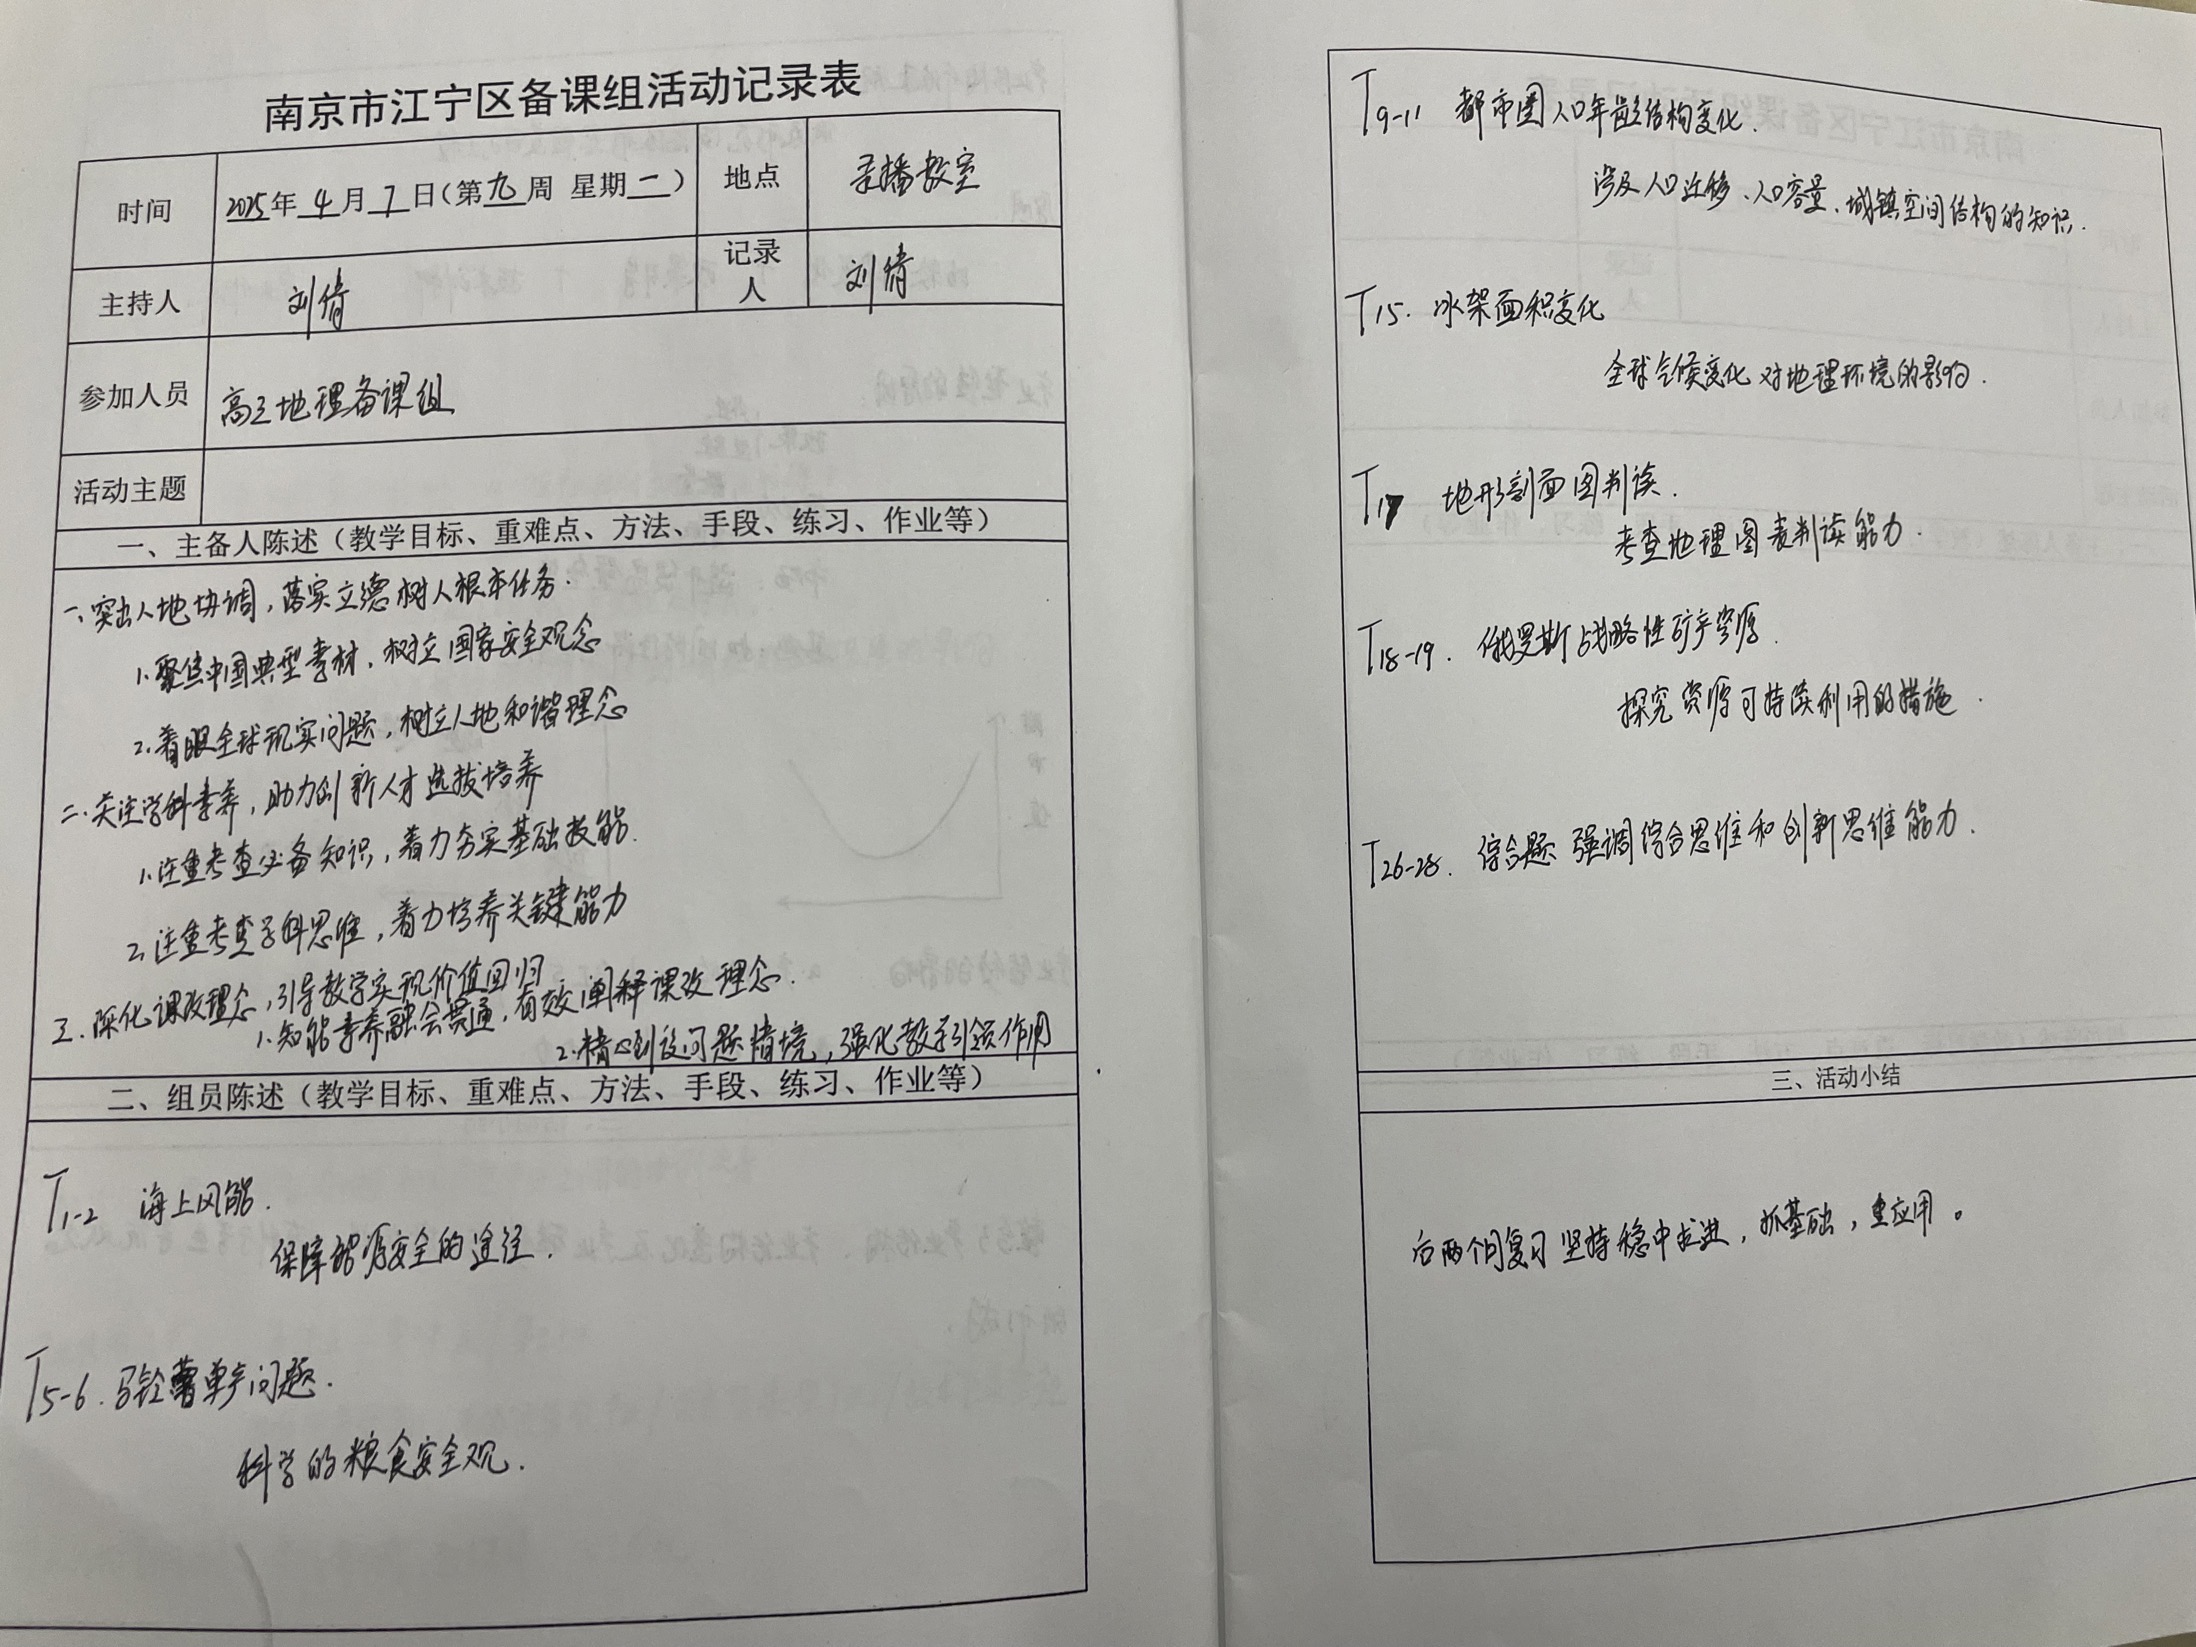 南京市江宁区备课组活动记录表
时间 2025年4月7日(第九周 星期二) 地点 录播教室
主持人 刘倩 记录人 刘倩
参加人员 高三地理备课组
活动主题
一、主备人陈述（教学目标、重难点、方法、手段、练习、作业等）
一、突出人地协调，落实立德树人根本任务.
1.聚焦中国典型素材，树立国家安全观念
2.着眼全球现实问题，树立人地和谐理念
二.关注学科素养，助力创新人才选拔培养
1.注重考查必备知识，着力夯实基础技能.
2.注重考查学科思维，着力培养关键能力
三.深化课改理念，引导教学实现价值回归
1.知能素养融会贯通，有效阐释课改理念.
2.精心创设问题情境，强化教学引领作用
二、组员陈述（教学目标、重难点、方法、手段、练习、作业等）
T1-2 海上风能.
保障能源安全的途径.
T5-6.马铃薯单产问题.
科学的粮食安全观.
T9-11 都市圈人口年龄结构变化.
涉及人口迁移、人口容量、城镇空间结构的知识.
T15. 冰架面积变化
全球气候变化对地理环境的影响.
T17 地形剖面图判读.
考查地理图表判读能力.
T18-19. 俄罗斯战略性矿产资源.
探究资源可持续利用的措施.
T26-28. 综合题 强调综合思维和创新思维能力.
三、活动小结
后两个月复习坚持稳中求进，抓基础，重应用。